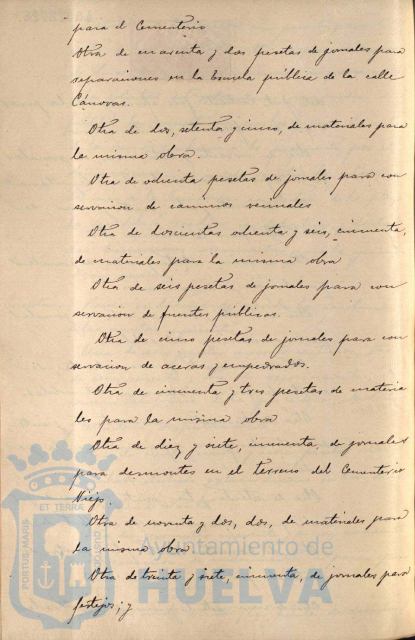 para el Cementerio
Otra de cuarenta y dos pesetas de jornales para
reparaciones en la Escuela pública de la calle
Cánovas.
Otra de dos, setenta y cinco, de materiales para
la misma obra.
Otra de ochenta pesetas de jornales para con
servacion de caminos vecinales
Otra de doscientas ochenta y seis, cincuenta,
de materiales para la misma obra
Otra de seis pesetas de jornales para con
servacion de fuentes públicas.
Otra de cinco pesetas de jornales para con
servacion de aceras y empedrados.
Otra de cincuenta y tres pesetas de materia
les para la misma obra
Otra de diez y siete, cincuenta, de jornales
para desmontes en el terreno del Cementerio
Viejo.
Otra de noventa y dos, dos, de materiales para
la misma obra
Otra de treinta y siete, cincuenta, de jornales para
festejos; y
PORTUS MARIS
ET TERRÆ
CUSTODIO
Ayuntamiento de
HUELVA